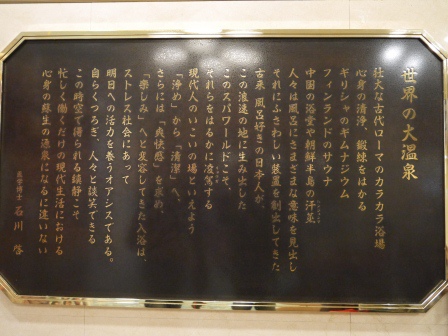 世界の大温泉
壮大な古代ローマのカラカラ浴場
心身の清浄、鍛錬をはかる
ギリシャのギムナジウム
フィンランドのサウナ
中国の浴堂や朝鮮半島の汗蒸
人々は風呂にさまざまな意味を見出し
それにふさわしい装置を創出してきた
古来 風呂好きの日本人が、
この浪速の地に生み出した
このスパワールドこそ、
それらをはるかに凌駕する
現代人のいこいの場といえよう
「浄め」から「清潔」へ、
さらには「爽快感」を求め、
「楽しみ」へと変容してきた入浴は、
ストレス社会にあって
明日への活力を養うオアシスである。
自らくつろぎ、人々と談笑できる
この時空で得られる鎮静こそ
忙しく働くだけの現代生活における
心身の蘇生の源泉になるに違いない
博士 石川 啓